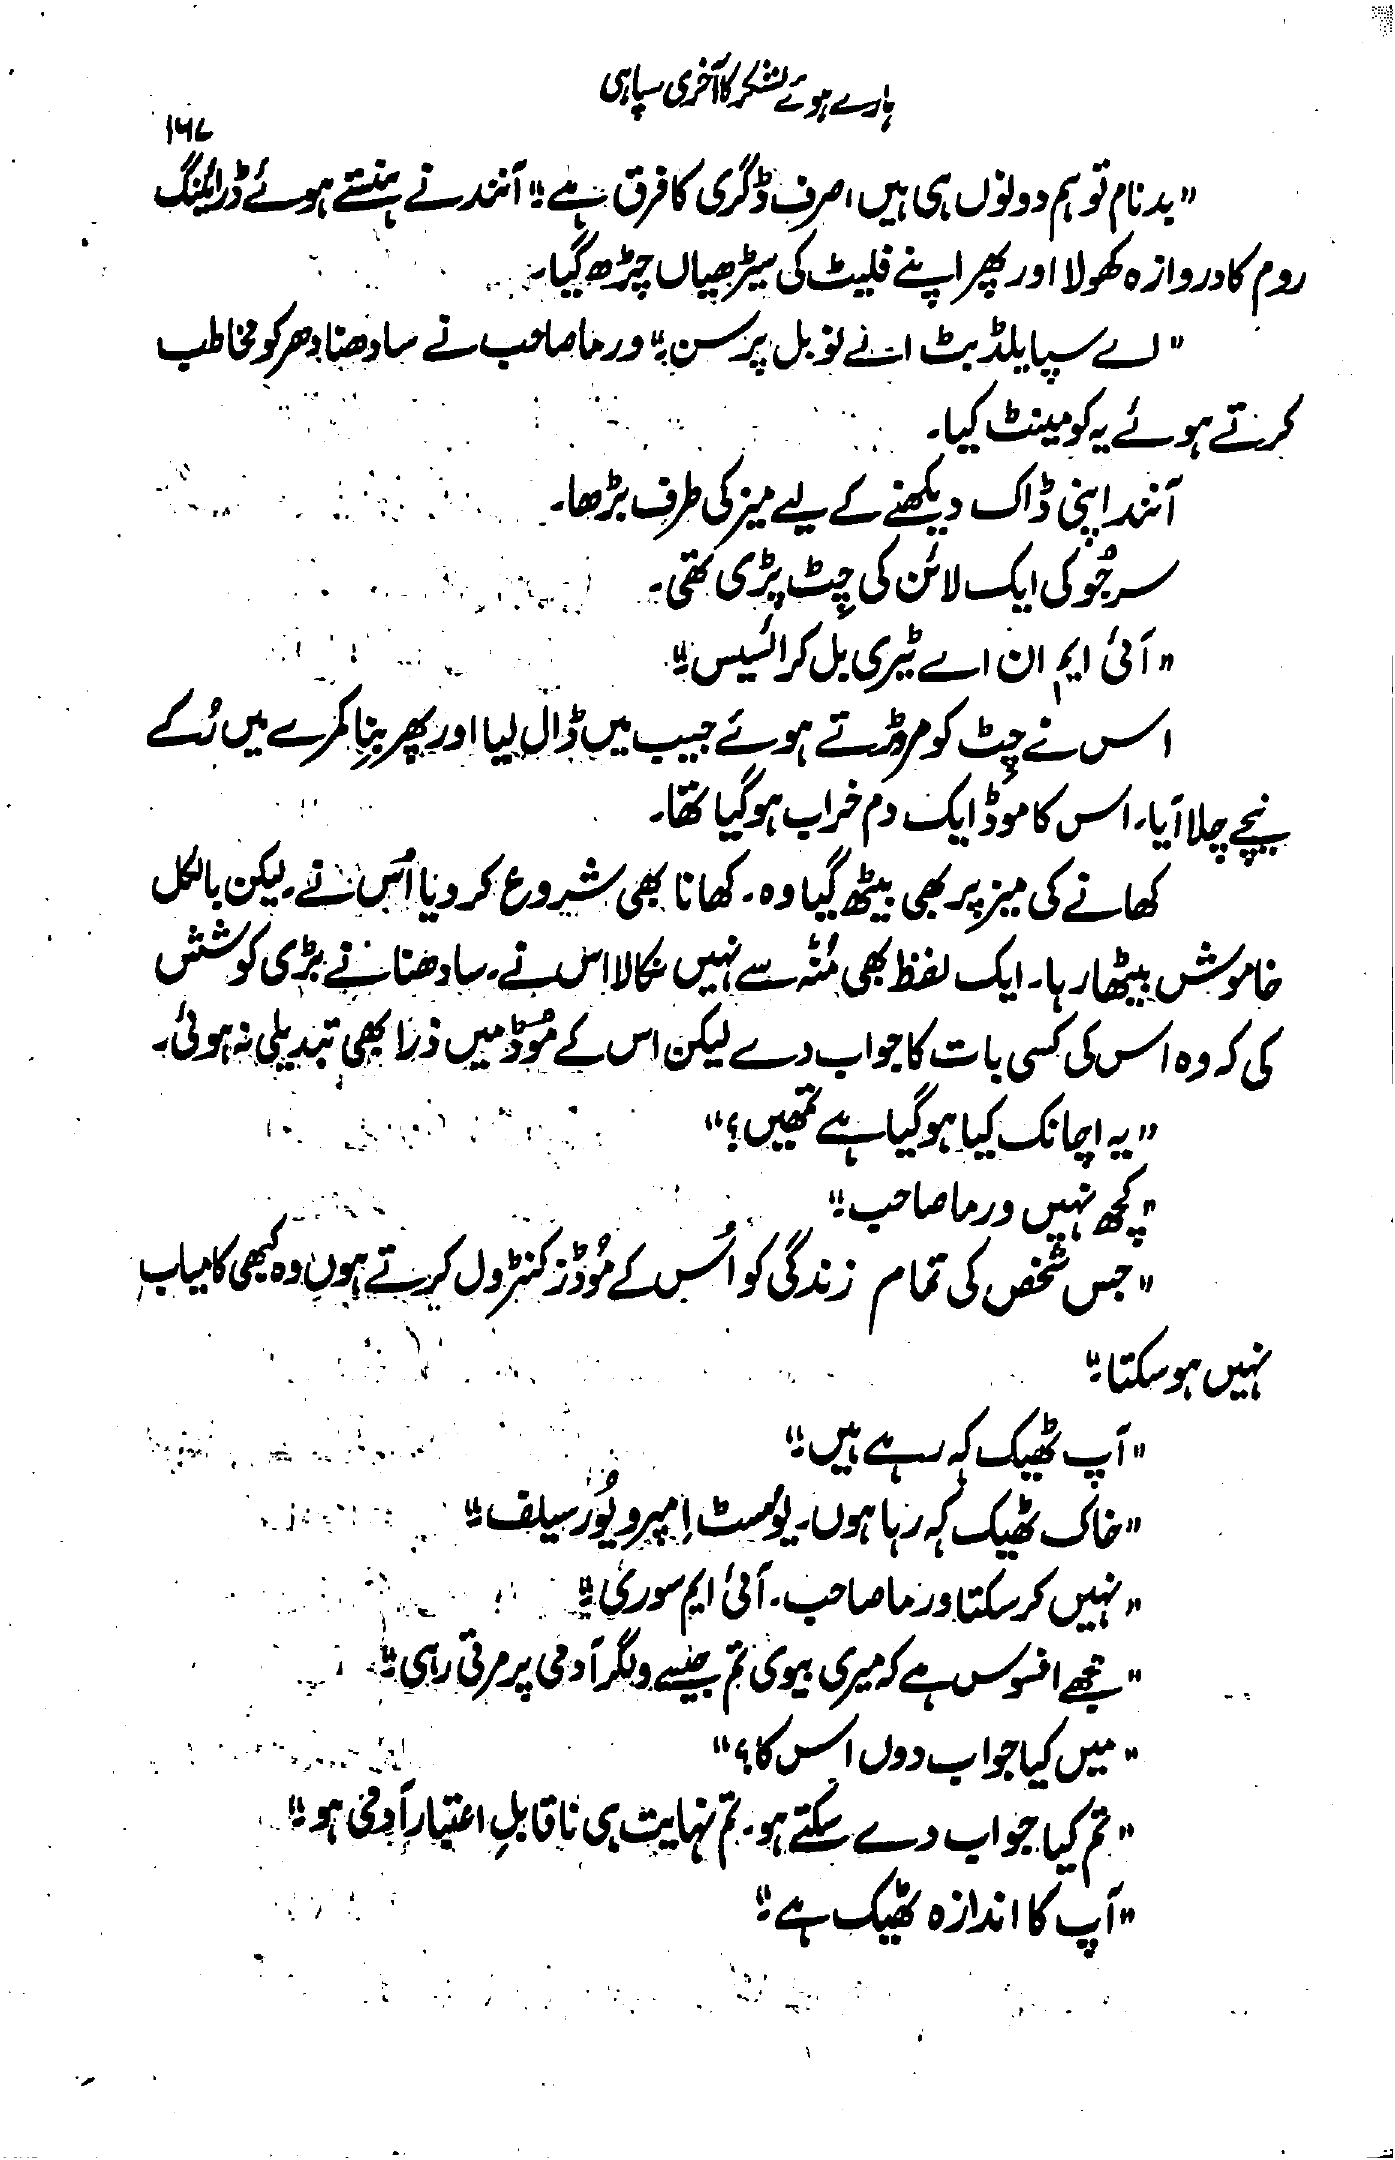 ہارے ہوئے لشکر کا آخری سپاہی
۱۶۷
"بدنام تو ہم دونوں ہی ہیں، صرف ڈگری کا فرق ہے۔" آنند نے ہنستے ہوئے ڈرائنگ
روم کا دروازہ کھولا اور پھر اپنے فلیٹ کی سیڑھیاں چڑھ گیا۔
"اے سپایلڈ بٹ اے نوبل پرسن۔" ورما صاحب نے سادھنا دھر کو مخاطب
کرتے ہوئے یہ کومینٹ کیا۔
آنند اپنی ڈاک دیکھنے کے لیے میز کی طرف بڑھا۔
سرجُو کی ایک لائن کی چِٹ پڑی تھی۔
"آئی ایم ان اے ٹیری بل کرائسیس۔"
اس نے چِٹ کو مروڑتے ہوئے جیب میں ڈال لیا اور پھر بِنا کمرے میں رُکے
نیچے چلا آیا۔ اس کا موُڈ ایک دم خراب ہو گیا تھا۔
کھانے کی میز پر بھی بیٹھ گیا وہ۔ کھانا بھی شروع کر دیا اُس نے۔ لیکن بالکل
خاموش بیٹھا رہا۔ ایک لفظ بھی مُنہ سے نہیں نکالا اس نے۔ سادھنا نے بڑی کوشش
کی کہ وہ اس کی کسی بات کا جواب دے لیکن اس کے موُڈ میں ذرا بھی تبدیلی نہ ہوئی۔
"یہ اچانک کیا ہو گیا ہے تمھیں؟"
"کچھ نہیں ورما صاحب۔"
"جس شخص کی تمام زندگی کو اُس کے موُڈز کنٹرول کرتے ہوں وہ کبھی کامیاب
نہیں ہو سکتا۔"
"آپ ٹھیک کہہ رہے ہیں۔"
"خاک ٹھیک کہہ رہا ہوں۔ یوُ مسٹ اِمپرو یوُر سیلف۔"
"نہیں کر سکتا ورما صاحب۔ آئی ایم سوری۔"
"مجھے افسوس ہے کہ میری بیوی تم جیسے ولگر آدمی پر مرتی رہی۔"
"میں کیا جواب دوں اس کا؟"
"تم کیا جواب دے سکتے ہو۔ تم نہایت ہی ناقابلِ اعتبار آدمی ہو۔"
"آپ کا اندازہ ٹھیک ہے۔"